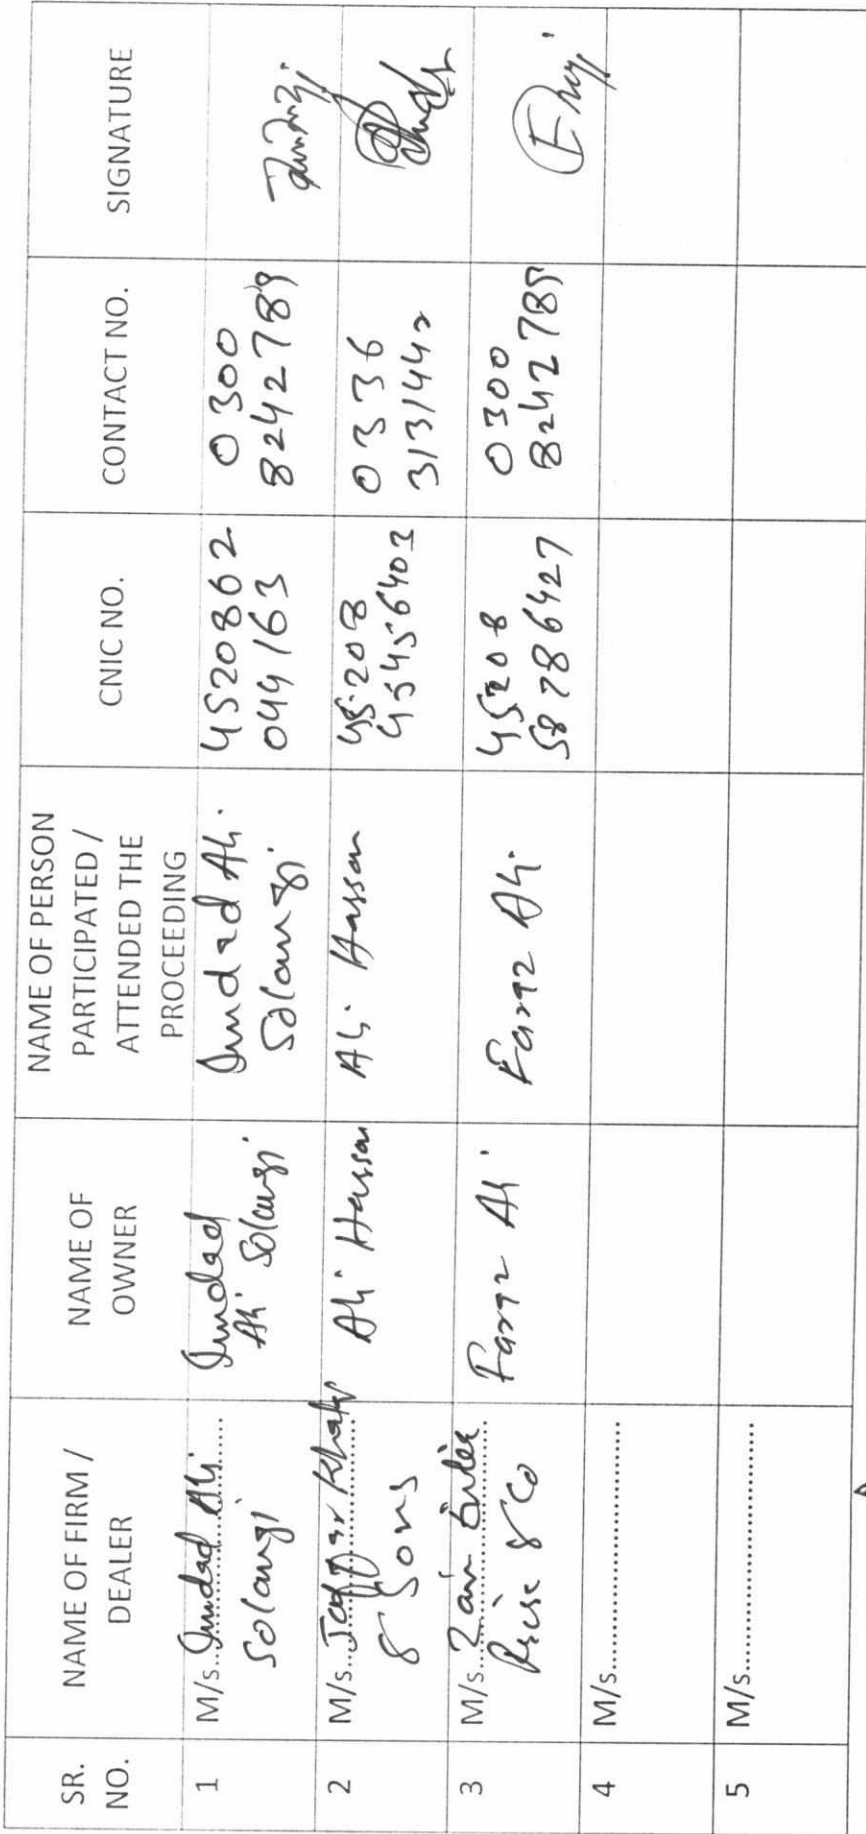 SR. NO.
NAME OF FIRM / DEALER
NAME OF OWNER
NAME OF PERSON PARTICIPATED / ATTENDED THE PROCEEDING
CNIC NO.
CONTACT NO.
SIGNATURE
1
M/s. Imdad Ali
Solangi
Imdad
Ali Solangi
Imdad Ali
Solangi
4520862
044163
0300
8242789
2
M/s. Jaffar
& Sons
Ali Hassan
Ali Hassan
45208
45456403
0336
3131442
3
M/s. Zain Enter
Prise & Co
Faraz Ali
Faraz Ali
45208
58786427
0300
8242789
4
M/s.
5
M/s.